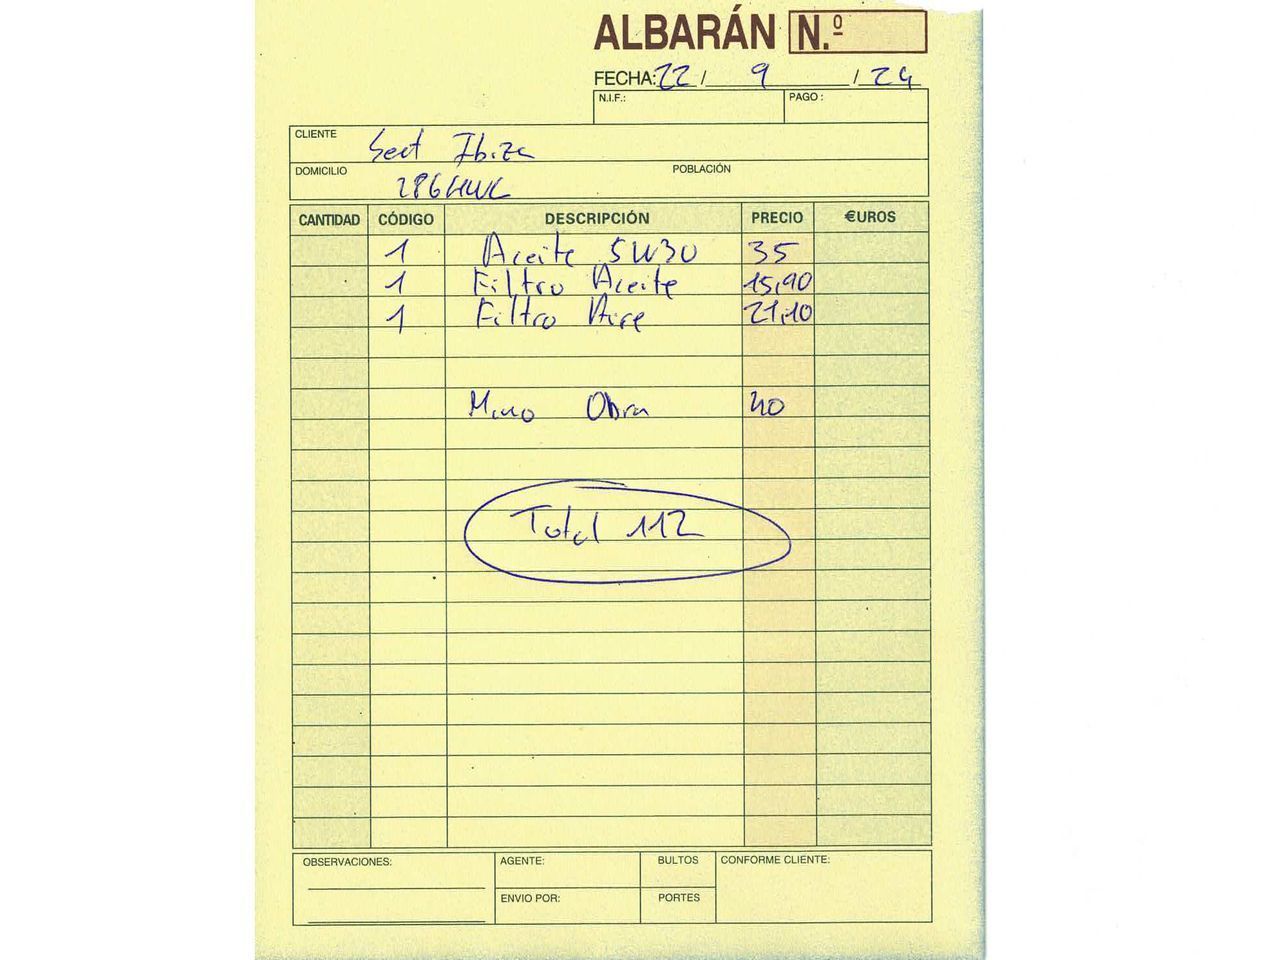 ALBARÁN N.º
FECHA: 22 / 9 / 24
N.I.F.: PAGO :
CLIENTE Seat Ibiza
DOMICILIO POBLACIÓN
CANTIDAD CÓDIGO DESCRIPCIÓN PRECIO €UROS
1 Aceite 5W30 35
1 Filtro Aceite 15,90
1 Filtro Aire 21,10
Mano Obra 40
Total 112
OBSERVACIONES: AGENTE: BULTOS CONFORME CLIENTE:
ENVIO POR: PORTES